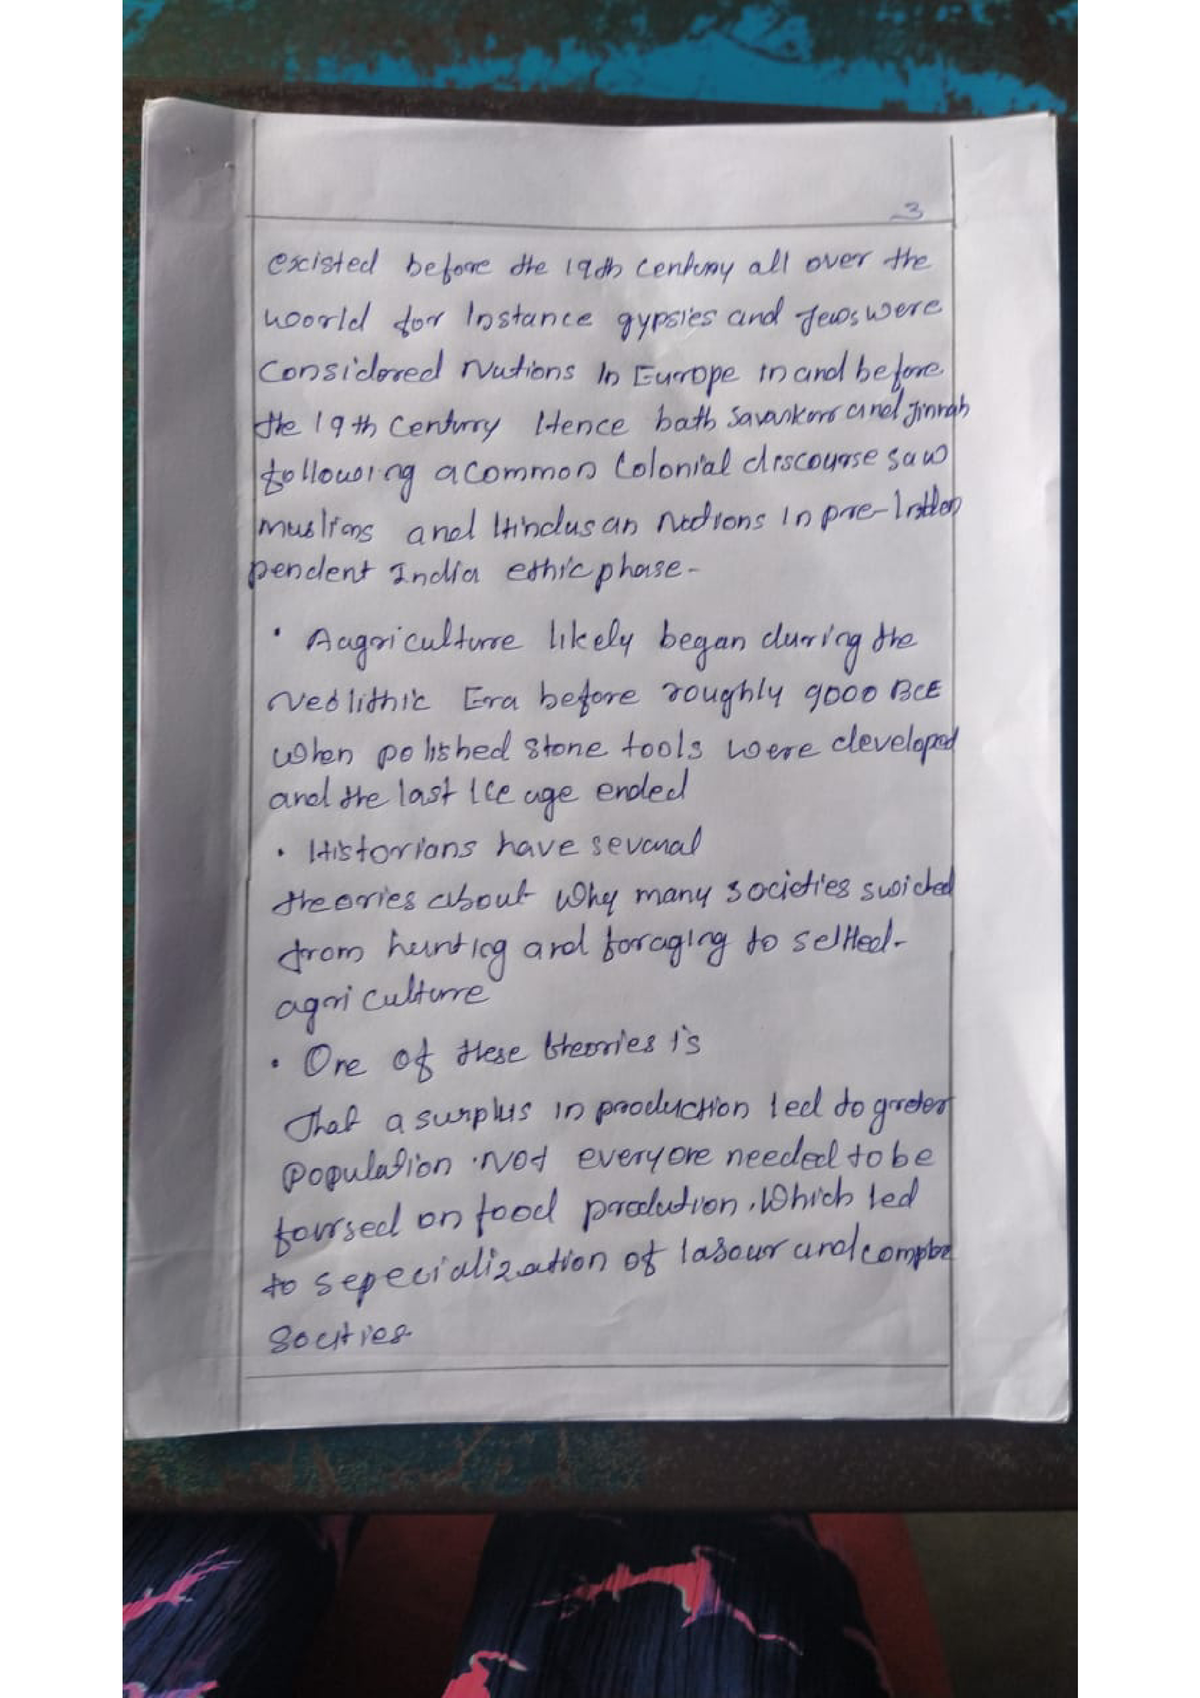 3
excisted before the 19th century all over the
woorld for Instance gypsies and Jews were
Considored Nutions In Europe in and before
the 19th Century Hence bath Savarkorr and Jinnah
following a common Colonial discourse saw
muslims and Hindus an Nations in pre-Inden
pendent India ethic phase-
• Aagriculture likely began during the
Neolithic Era before roughly 9000 BCE
When polished Stone tools were developed
and the last Ice age ended
• Historians have several
theories about why many societies swicted
from hunting and foraging to settled-
agriculture
• One of these theories is
That a surplus in production led to greter
population . Not everyone needed to be
foursed on food prodution. Which led
to sepecialization of labour and comple
Socities.